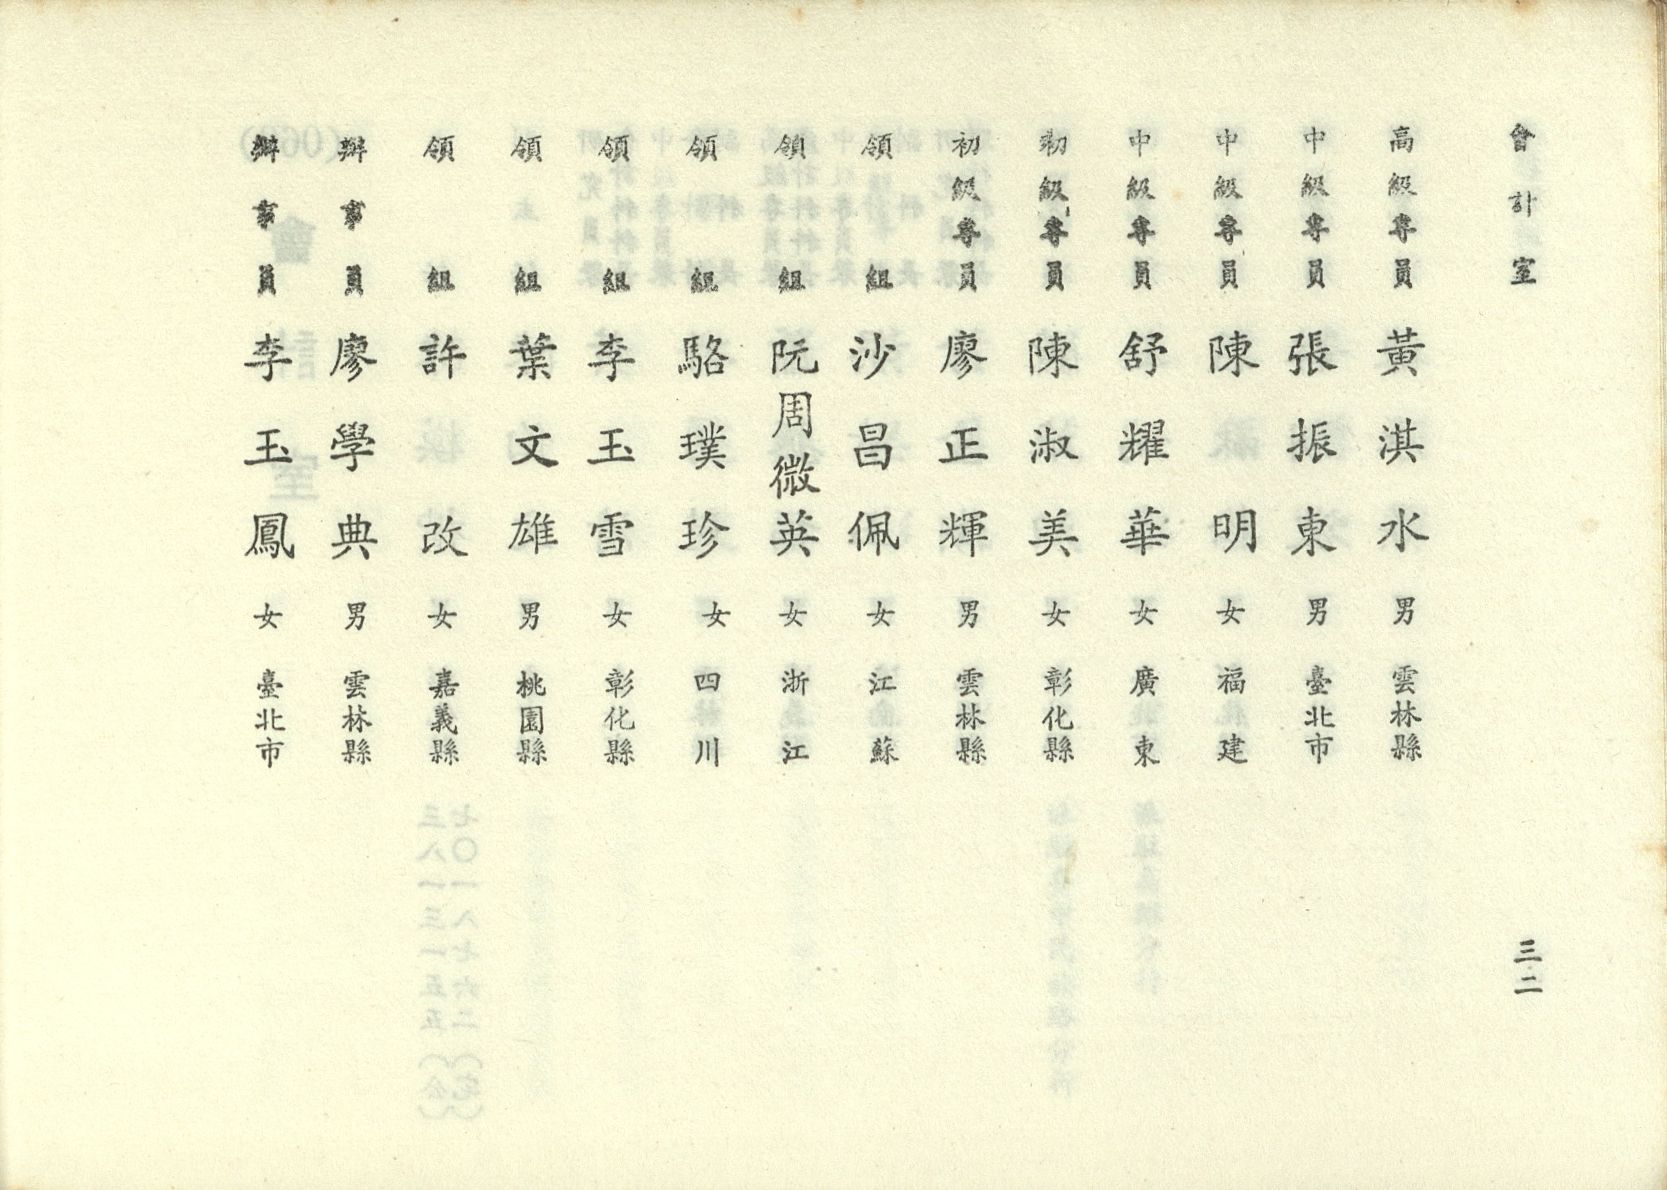 會計室 三二
高級專員 黃淇水 男 雲林縣
中級專員 張振東 男 臺北市
中級專員 陳明 女 福建
中級專員 舒耀華 女 廣東
初級專員 陳淑美 女 彰化縣
初級專員 廖正輝 男 雲林縣
領組 沙昌佩 女 江蘇
領組 阮周微英 女 浙江
領組 駱璞珍 女 四川
領組 李玉雪 女 彰化縣
領組 葉文雄 男 桃園縣
領組 許改 女 嘉義縣
辦事員 廖學典 男 雲林縣
辦事員 李玉鳳 女 臺北市